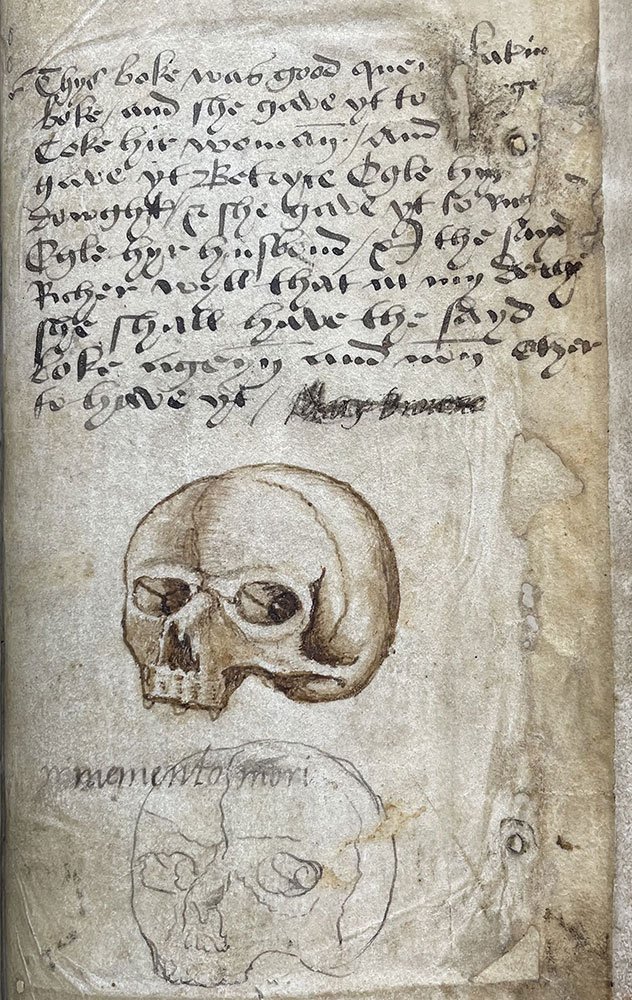 Thys boke was good quen katin
boke / and she gave yt to
Coke hir woman / and
gave yt Betryce Egle hyr
dowght / & she gave yt to Ric
Egle hyr husbend / & I the sayd
Richer wyll that at my deth
she shall have the sayd
boke ageyn and non other
to hawe yt /
memento mori